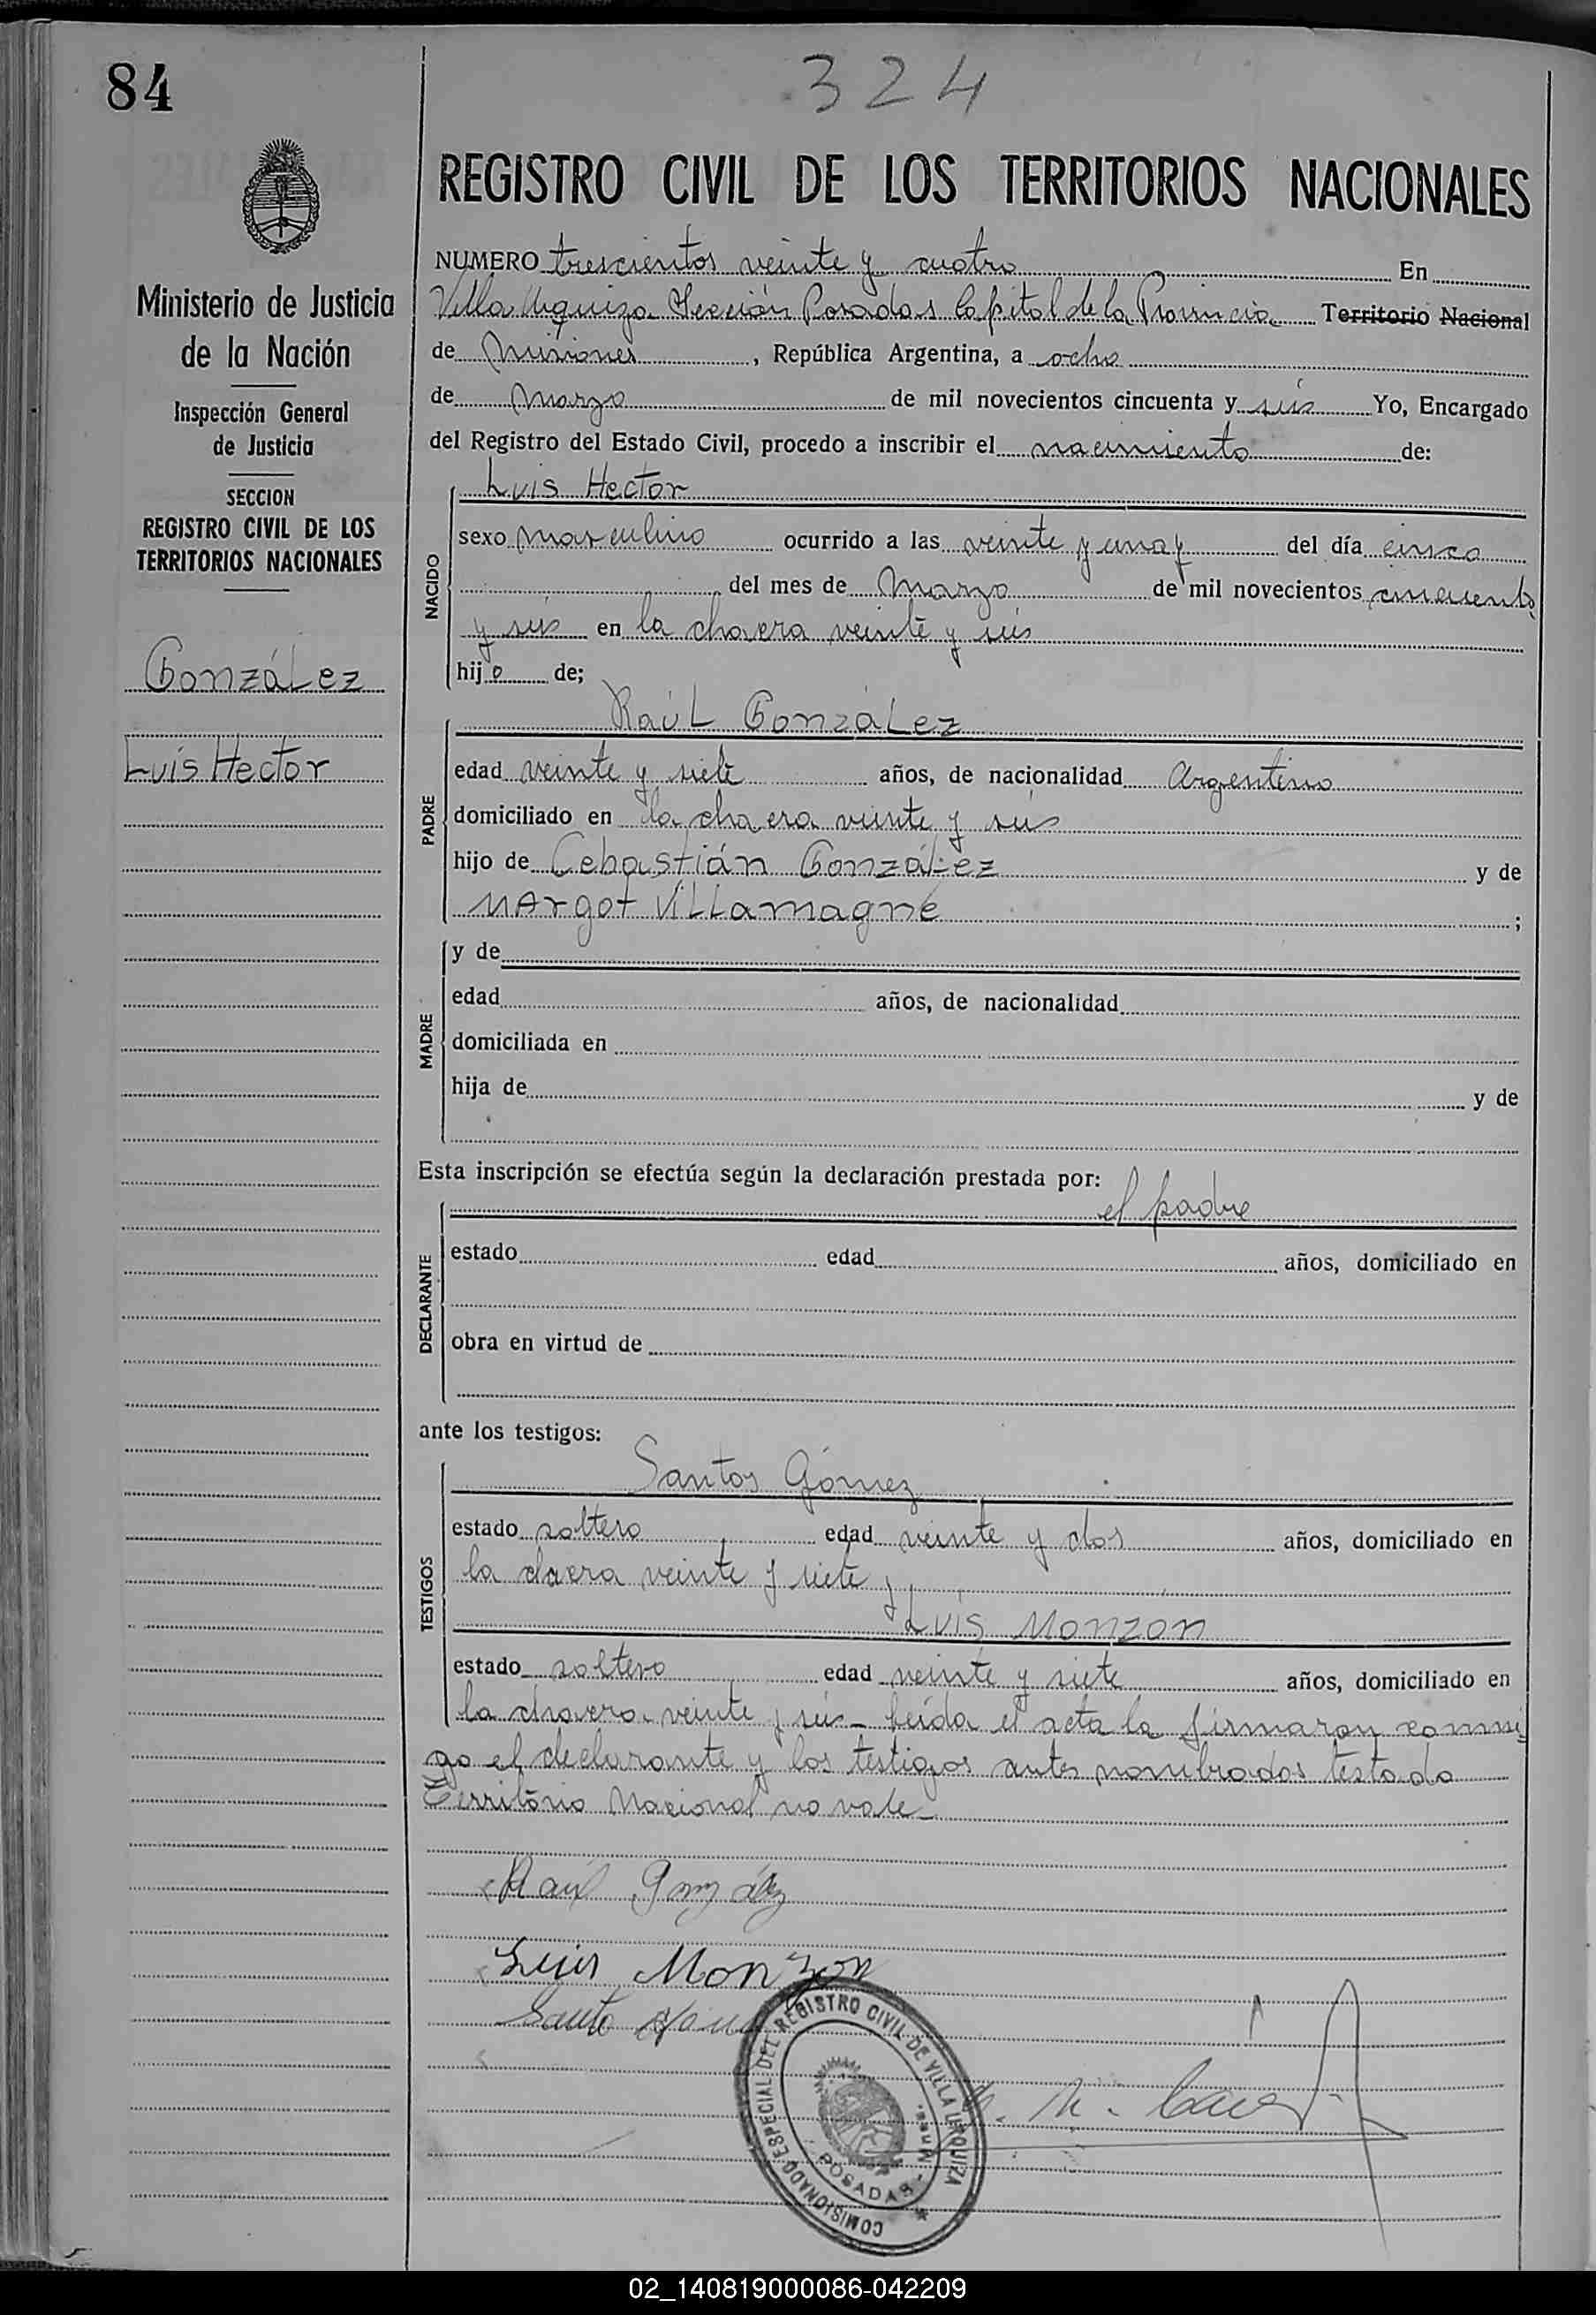 84
324
REGISTRO CIVIL DE LOS TERRITORIOS NACIONALES
Ministerio de Justicia
de la Nación
Inspección General
de Justicia
SECCION
REGISTRO CIVIL DE LOS
TERRITORIOS NACIONALES
González
Luis Hector
NUMERO trescientos veinte y cuatro En
Villa Urquiza Sección Posadas Capital de la Provincia Territorio Nacional
de Misiones, República Argentina, a ocho
de Marzo de mil novecientos cincuenta y seis Yo, Encargado
del Registro del Estado Civil, procedo a inscribir el nacimiento de:
NACIDO
Luis Hector
sexo masculino ocurrido a las veinte y una y del día cinco
del mes de Marzo de mil novecientos cincuenta
y seis en la chacra veinte y seis
hijo de;
PADRE
Raúl González
edad veinte y siete años, de nacionalidad Argentino
domiciliado en la chacra veinte y seis
hijo de Cebastián González y de
Margot Villamagne;
MADRE
y de
edad años, de nacionalidad
domiciliada en
hija de y de
Esta inscripción se efectúa según la declaración prestada por:
DECLARANTE
el padre
estado edad años, domiciliado en
obra en virtud de
ante los testigos:
TESTIGOS
Santos Gómez
estado soltero edad veinte y dos años, domiciliado en
la chacra veinte y siete y
Luis Monzon
estado soltero edad veinte y siete años, domiciliado en
la chacra veinte y seis - leída el acta la firmaron conmi
go el declarante y los testigos antes nombrados testado
Territorio Nacional no vale
Raúl González
Luis Monzon
Santo
COMISIONADO ESPECIAL DEL REGISTRO CIVIL DE VILLA URQUIZA
POSADAS - Mnes.
02_140819000086-042209